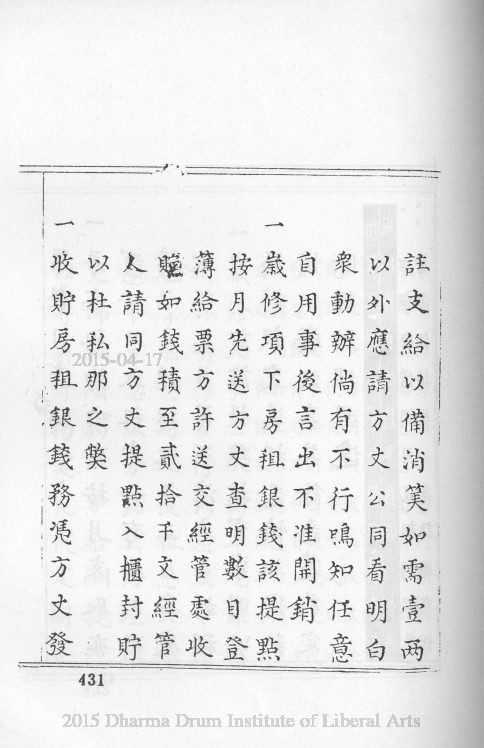 註支給以備消筭如需壹两
以外應請方丈公同看明白
衆動辦倘有不行鳴知任意
自用事後言出不准開銷
一歲修項下房租銀錢該提點
按月先送方丈查明數目登
薄給票方許送交經管處收
貯如錢積至貳拾千文經管
人請同方丈提點入櫃封貯
以杜私那之獘
一收貯房租銀錢務凴方丈發
431
2015-04-17
2015 Dharma Drum Institute of Liberal Arts